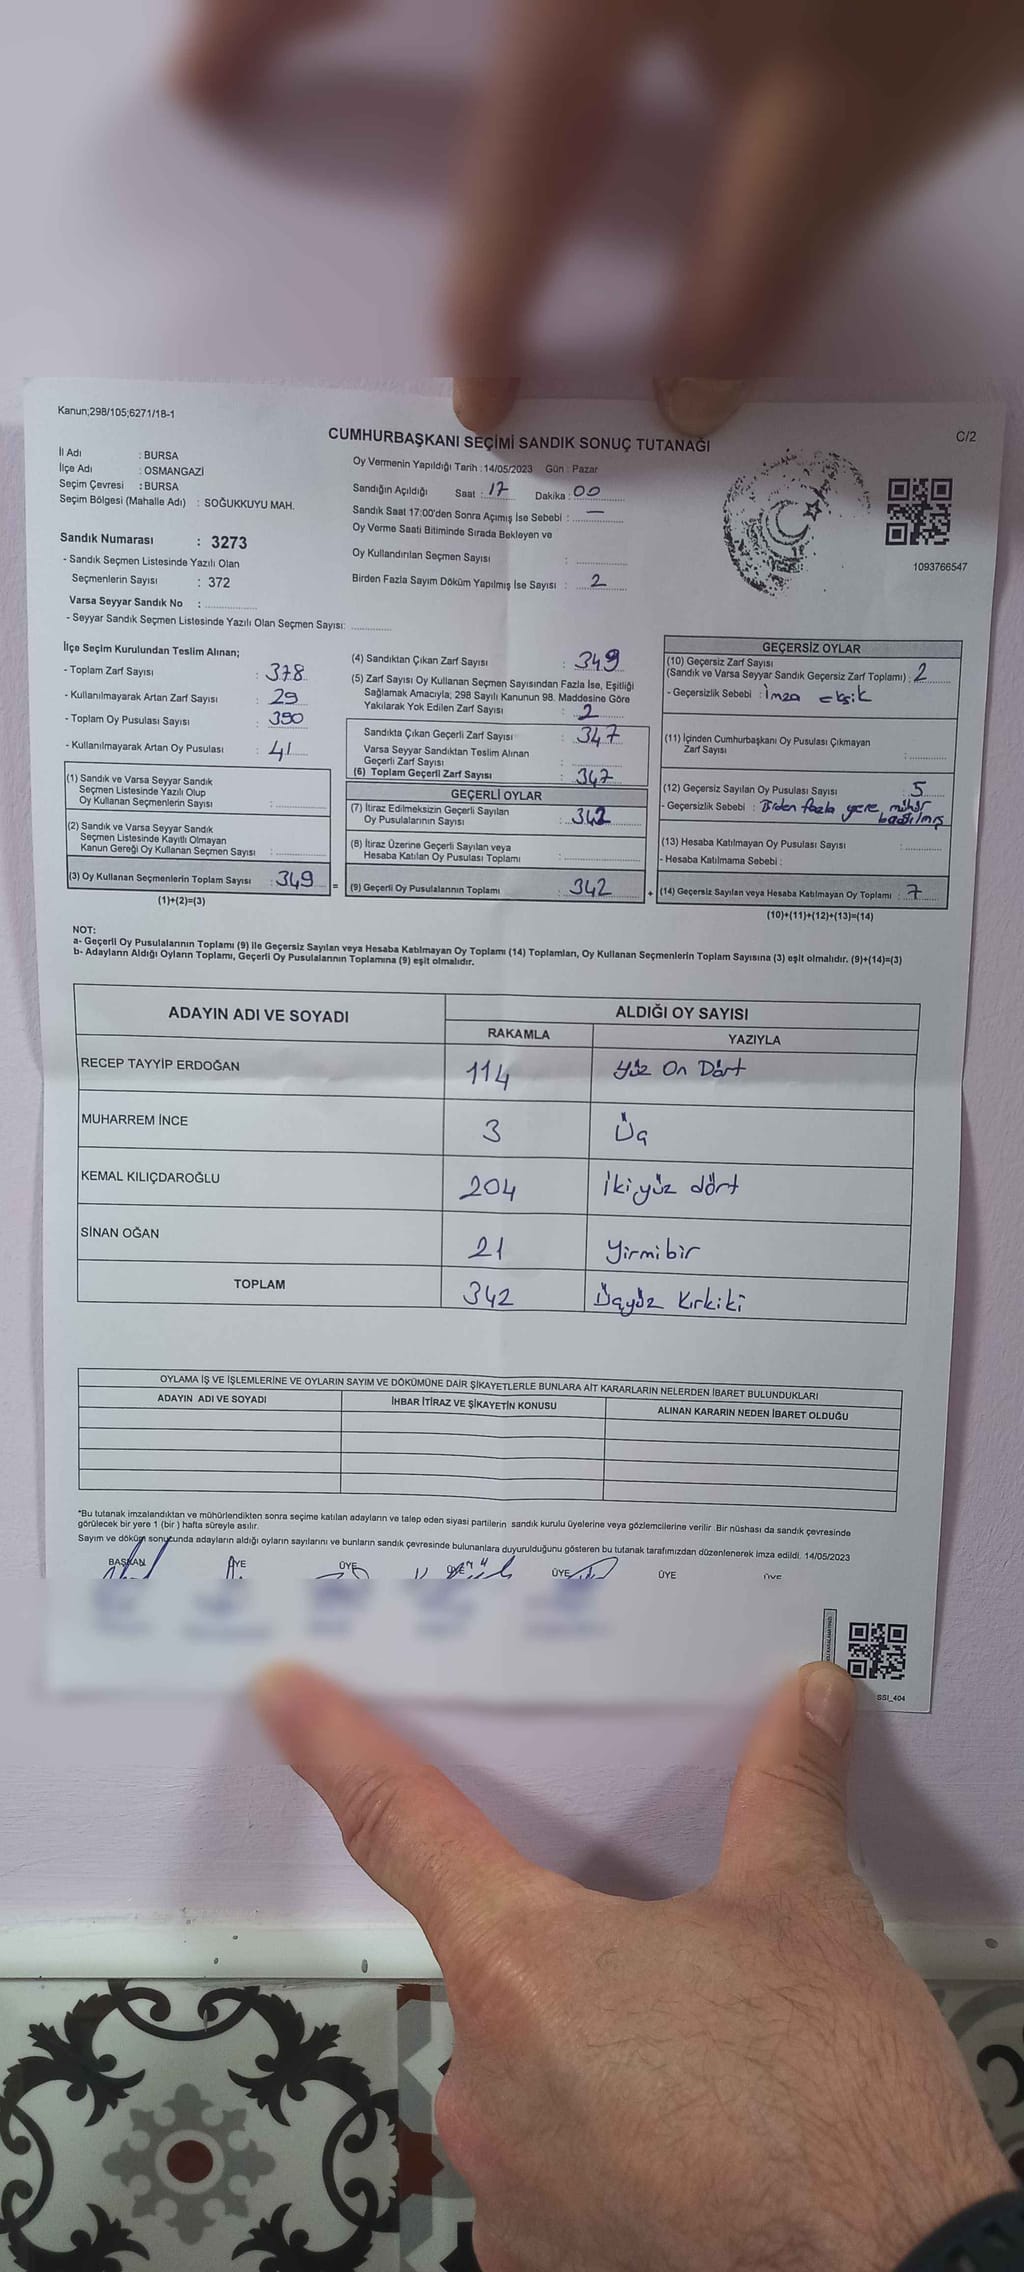 Kanun;298/105;6271/18-1
C/2
CUMHURBAŞKANI SEÇİMİ SANDIK SONUÇ TUTANAĞI
İl Adı : BURSA
İlçe Adı : OSMANGAZİ
Seçim Çevresi : BURSA
Seçim Bölgesi (Mahalle Adı) : SOĞUKKUYU MAH.
Sandık Numarası : 3273
- Sandık Seçmen Listesinde Yazılı Olan
Seçmenlerin Sayısı : 372
Varsa Seyyar Sandık No :
- Seyyar Sandık Seçmen Listesinde Yazılı Olan Seçmen Sayısı:
Oy Vermenin Yapıldığı Tarih : 14/05/2023 Gün : Pazar
Sandığın Açıldığı Saat : 17 Dakika : 00
Sandık Saat 17:00'den Sonra Açımış İse Sebebi : —
Oy Verme Saati Bitiminde Sırada Bekleyen ve
Oy Kullandırılan Seçmen Sayısı :
Birden Fazla Sayım Döküm Yapılmış İse Sayısı : 2
1093766547
İlçe Seçim Kurulundan Teslim Alınan;
- Toplam Zarf Sayısı : 378
- Kullanılmayarak Artan Zarf Sayısı : 29
- Toplam Oy Pusulası Sayısı : 390
- Kullanılmayarak Artan Oy Pusulası : 41
(1) Sandık ve Varsa Seyyar Sandık
Seçmen Listesinde Yazılı Olup
Oy Kullanan Seçmenlerin Sayısı :
(2) Sandık ve Varsa Seyyar Sandık
Seçmen Listesinde Kayıtlı Olmayan
Kanun Gereği Oy Kullanan Seçmen Sayısı :
(3) Oy Kullanan Seçmenlerin Toplam Sayısı : 349
(1)+(2)=(3)
=
(4) Sandıktan Çıkan Zarf Sayısı : 349
(5) Zarf Sayısı Oy Kullanan Seçmen Sayısından Fazla İse, Eşitliği
Sağlamak Amacıyla; 298 Sayılı Kanunun 98. Maddesine Göre
Yakılarak Yok Edilen Zarf Sayısı : 2
Sandıkta Çıkan Geçerli Zarf Sayısı : 347
Varsa Seyyar Sandıktan Teslim Alınan
Geçerli Zarf Sayısı :
(6) Toplam Geçerli Zarf Sayısı : 347
GEÇERLİ OYLAR
(7) İtiraz Edilmeksizin Geçerli Sayılan
Oy Pusulalarının Sayısı : 342
(8) İtiraz Üzerine Geçerli Sayılan veya
Hesaba Katılan Oy Pusulası Toplamı :
(9) Geçerli Oy Pusulalarının Toplamı : 342
+
GEÇERSİZ OYLAR
(10) Geçersiz Zarf Sayısı
(Sandık ve Varsa Seyyar Sandık Geçersiz Zarf Toplamı) : 2
- Geçersizlik Sebebi : İmza eksik
(11) İçinden Cumhurbaşkanı Oy Pusulası Çıkmayan
Zarf Sayısı :
(12) Geçersiz Sayılan Oy Pusulası Sayısı : 5
- Geçersizlik Sebebi : Birden fazla yere mühür
basılmış
(13) Hesaba Katılmayan Oy Pusulası Sayısı :
- Hesaba Katılmama Sebebi :
(14) Geçersiz Sayılan veya Hesaba Katılmayan Oy Toplamı : 7
(10)+(11)+(12)+(13)=(14)
NOT:
a- Geçerli Oy Pusulalarının Toplamı (9) ile Geçersiz Sayılan veya Hesaba Katılmayan Oy Toplamı (14) Toplamları, Oy Kullanan Seçmenlerin Toplam Sayısına (3) eşit olmalıdır. (9)+(14)=(3)
b- Adayların Aldığı Oyların Toplamı, Geçerli Oy Pusulalarının Toplamına (9) eşit olmalıdır.
ADAYIN ADI VE SOYADI ALDIĞI OY SAYISI
RAKAMLA YAZIYLA
RECEP TAYYİP ERDOĞAN 114 Yüz On Dört
MUHARREM İNCE 3 Üç
KEMAL KILIÇDAROĞLU 204 İkiyüz dört
SİNAN OĞAN 21 Yirmibir
TOPLAM 342 Üçyüz Kırkiki
OYLAMA İŞ VE İŞLEMLERİNE VE OYLARIN SAYIM VE DÖKÜMÜNE DAİR ŞİKAYETLERLE BUNLARA AİT KARARLARIN NELERDEN İBARET BULUNDUKLARI
ADAYIN ADI VE SOYADI İHBAR İTİRAZ VE ŞİKAYETİN KONUSU ALINAN KARARIN NEDEN İBARET OLDUĞU
*Bu tutanak imzalandıktan ve mühürlendikten sonra seçime katılan adayların ve talep eden siyasi partilerin sandık kurulu üyelerine veya gözlemcilerine verilir. Bir nüshası da sandık çevresinde
görülecek bir yere 1 (bir ) hafta süreyle asılır.
Sayım ve döküm sonucunda adayların aldığı oyların sayılarını ve bunların sandık çevresinde bulunanlara duyurulduğunu gösteren bu tutanak tarafımızdan düzenlenerek imza edildi. 14/05/2023
BAŞKAN ÜYE ÜYE ÜYE ÜYE ÜYE ÜYE
SSI_404